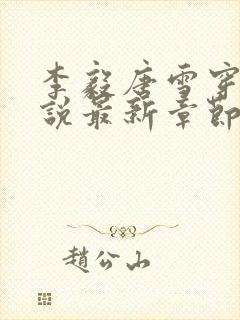 李毅唐雪穿
說最新章節
趙公山